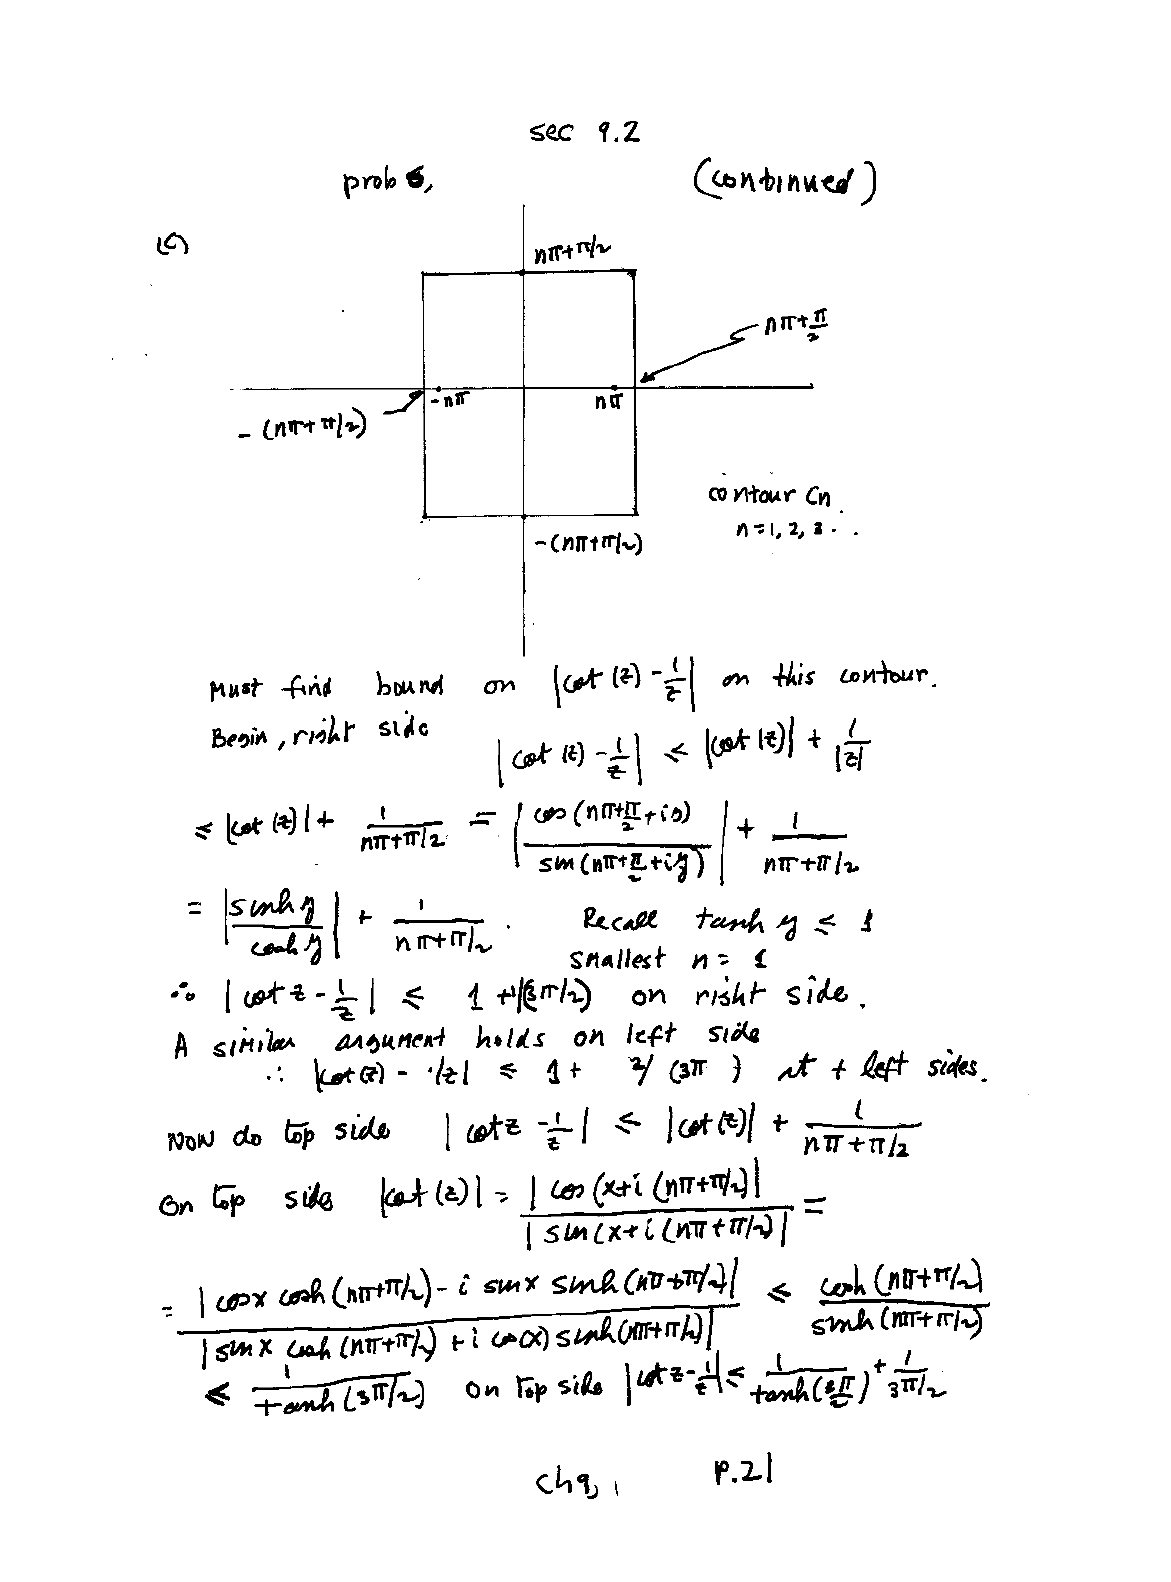 sec 9.2
prob 6, (continued)
(c)
nπ+π/2
nπ+π/2
-nπ nπ
-(nπ+π/2)
contour Cn
n=1, 2, 3 . .
-(nπ+π/2)
Must find bound on |cot(z) - 1/z| on this contour.
Begin, right side
|cot(z) - 1/z| ≤ |cot(z)| + 1/|z|
≤ |cot(z)| + 1/(nπ+π/2) = |cos(nπ+π/2+iy)/sin(nπ+π/2+iy)| + 1/(nπ+π/2)
= |sinh y/cosh y| + 1/(nπ+π/2). Recall tanh y ≤ 1
smallest n = 1
∴ |cot z - 1/z| ≤ 1+1/(3π/2) on right side.
A similar argument holds on left side
∴ |cot(z) - 1/z| ≤ 1+ 2/(3π) rt + left sides.
Now do top side |cot z - 1/z| ≤ |cot(z)| + 1/(nπ+π/2)
On top side |cot(z)| = |cos(x+i(nπ+π/2)|/|sin(x+i(nπ+π/2)| =
= |cosx cosh(nπ+π/2) - i sinx sinh(nπ+π/2)|/|sinx cosh(nπ+π/2) + i cos(x) sinh(nπ+π/2)| ≤ cosh(nπ+π/2)/sinh(nπ+π/2)
≤ 1/tanh(3π/2) On top side |cot z - 1/z| ≤ 1/tanh(3π/2) + 1/(3π/2)
ch9, p.21